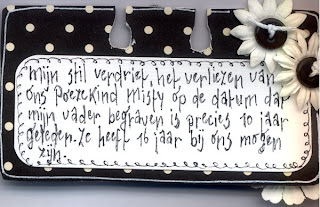 mijn stil verdriet, het verliezen van
ons poezekind Misty op de datum dat
mijn vader begraven is precies 10 jaar
geleden. Ze heeft 16 jaar bij ons mogen
zijn.